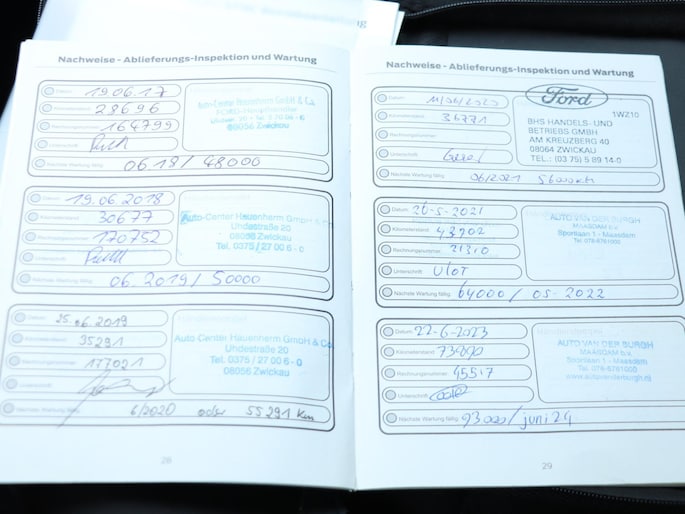 Nachweise - Ablieferungs-Inspektion und Wartung
Datum 19.06.17
Kilometerstand 28696
Rechnungsnummer 164799
Unterschrift
Nächste Wartung fällig 06.18/ 48000
Auto-Center Hauenherm GmbH & Co.
FORD-Haupthändler
08056 Zwickau
Datum 19.06.2018
Kilometerstand 30677
Rechnungsnummer 170752
Unterschrift
Nächste Wartung fällig 06.2019/ 50000
Auto-Center Hauenherm GmbH & Co
Uhdestraße 20
08056 Zwickau
Tel. 0375 / 27 00 6 - 0
Datum 25.06.2019
Kilometerstand 35291
Rechnungsnummer 177021
Unterschrift
Nächste Wartung fällig 6/2020 oder 55291 Km
Auto Center Hauenherm GmbH & Co
Uhdestraße 20
Tel. 0375 / 27 00 6 - 0
08056 Zwickau
28
Nachweise - Ablieferungs-Inspektion und Wartung
Datum 11/06/2020
Kilometerstand 36771
Rechnungsnummer
Unterschrift
Nächste Wartung fällig 06/2021 56000 km
Ford
1WZ10
BHS HANDELS- UND
BETRIEBS GMBH
AM KREUZBERG 40
08064 ZWICKAU
TEL.: (03 75) 5 89 14-0
Datum 20-5-2021
Kilometerstand 43902
Rechnungsnummer 21310
Unterschrift Vlot
Nächste Wartung fällig 64000 / 05-2022
AUTO VAN DER BURGH
MAASDAM b.v.
Sportlaan 1 - Maasdam
Tel. 078-6761000
Datum 22-6-2023
Kilometerstand
Rechnungsnummer 45517
Unterschrift
Nächste Wartung fällig 93000/juni 24
AUTO VAN DER BURGH
MAASDAM b.v.
Sportlaan 1 - Maasdam
Tel. 078-6761000
www.autovanderburgh.nl
29